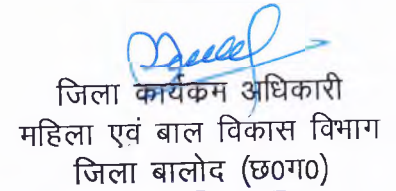 जिला कार्यकम अधिकारी
महिला एवं बाल विकास विभाग
जिला बालोद (छ0ग0)